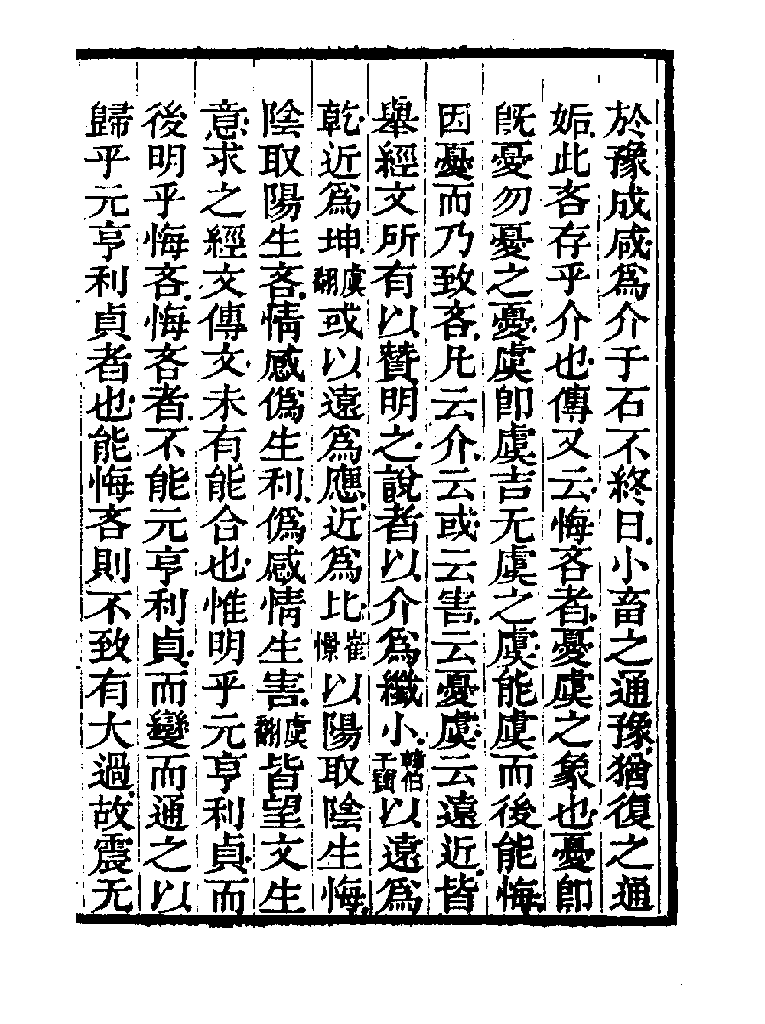 於豫成咸爲介于石不終日小畜之通豫猶復之通
姤此吝存乎介也傳又云悔吝者憂虞之象也憂卽
旣憂勿憂之憂虞卽虞吉无虞之虞能虞而後能悔
因憂而乃致吝凡云介云或云害云憂虞云遠近皆
舉經文所有以贊明之說者以介爲纖小韓伯干寶以遠爲
乾近爲坤虞翻或以遠爲應近爲比崔憬以陽取陰生悔
陰取陽生吝情感僞生利僞感情生害虞翻皆望文生
意求之經文傳文未有能合也惟明乎元亨利貞而
後明乎悔吝悔吝者不能元亨利貞而變而通之以
歸乎元亨利貞者也能悔吝則不致有大過故震无